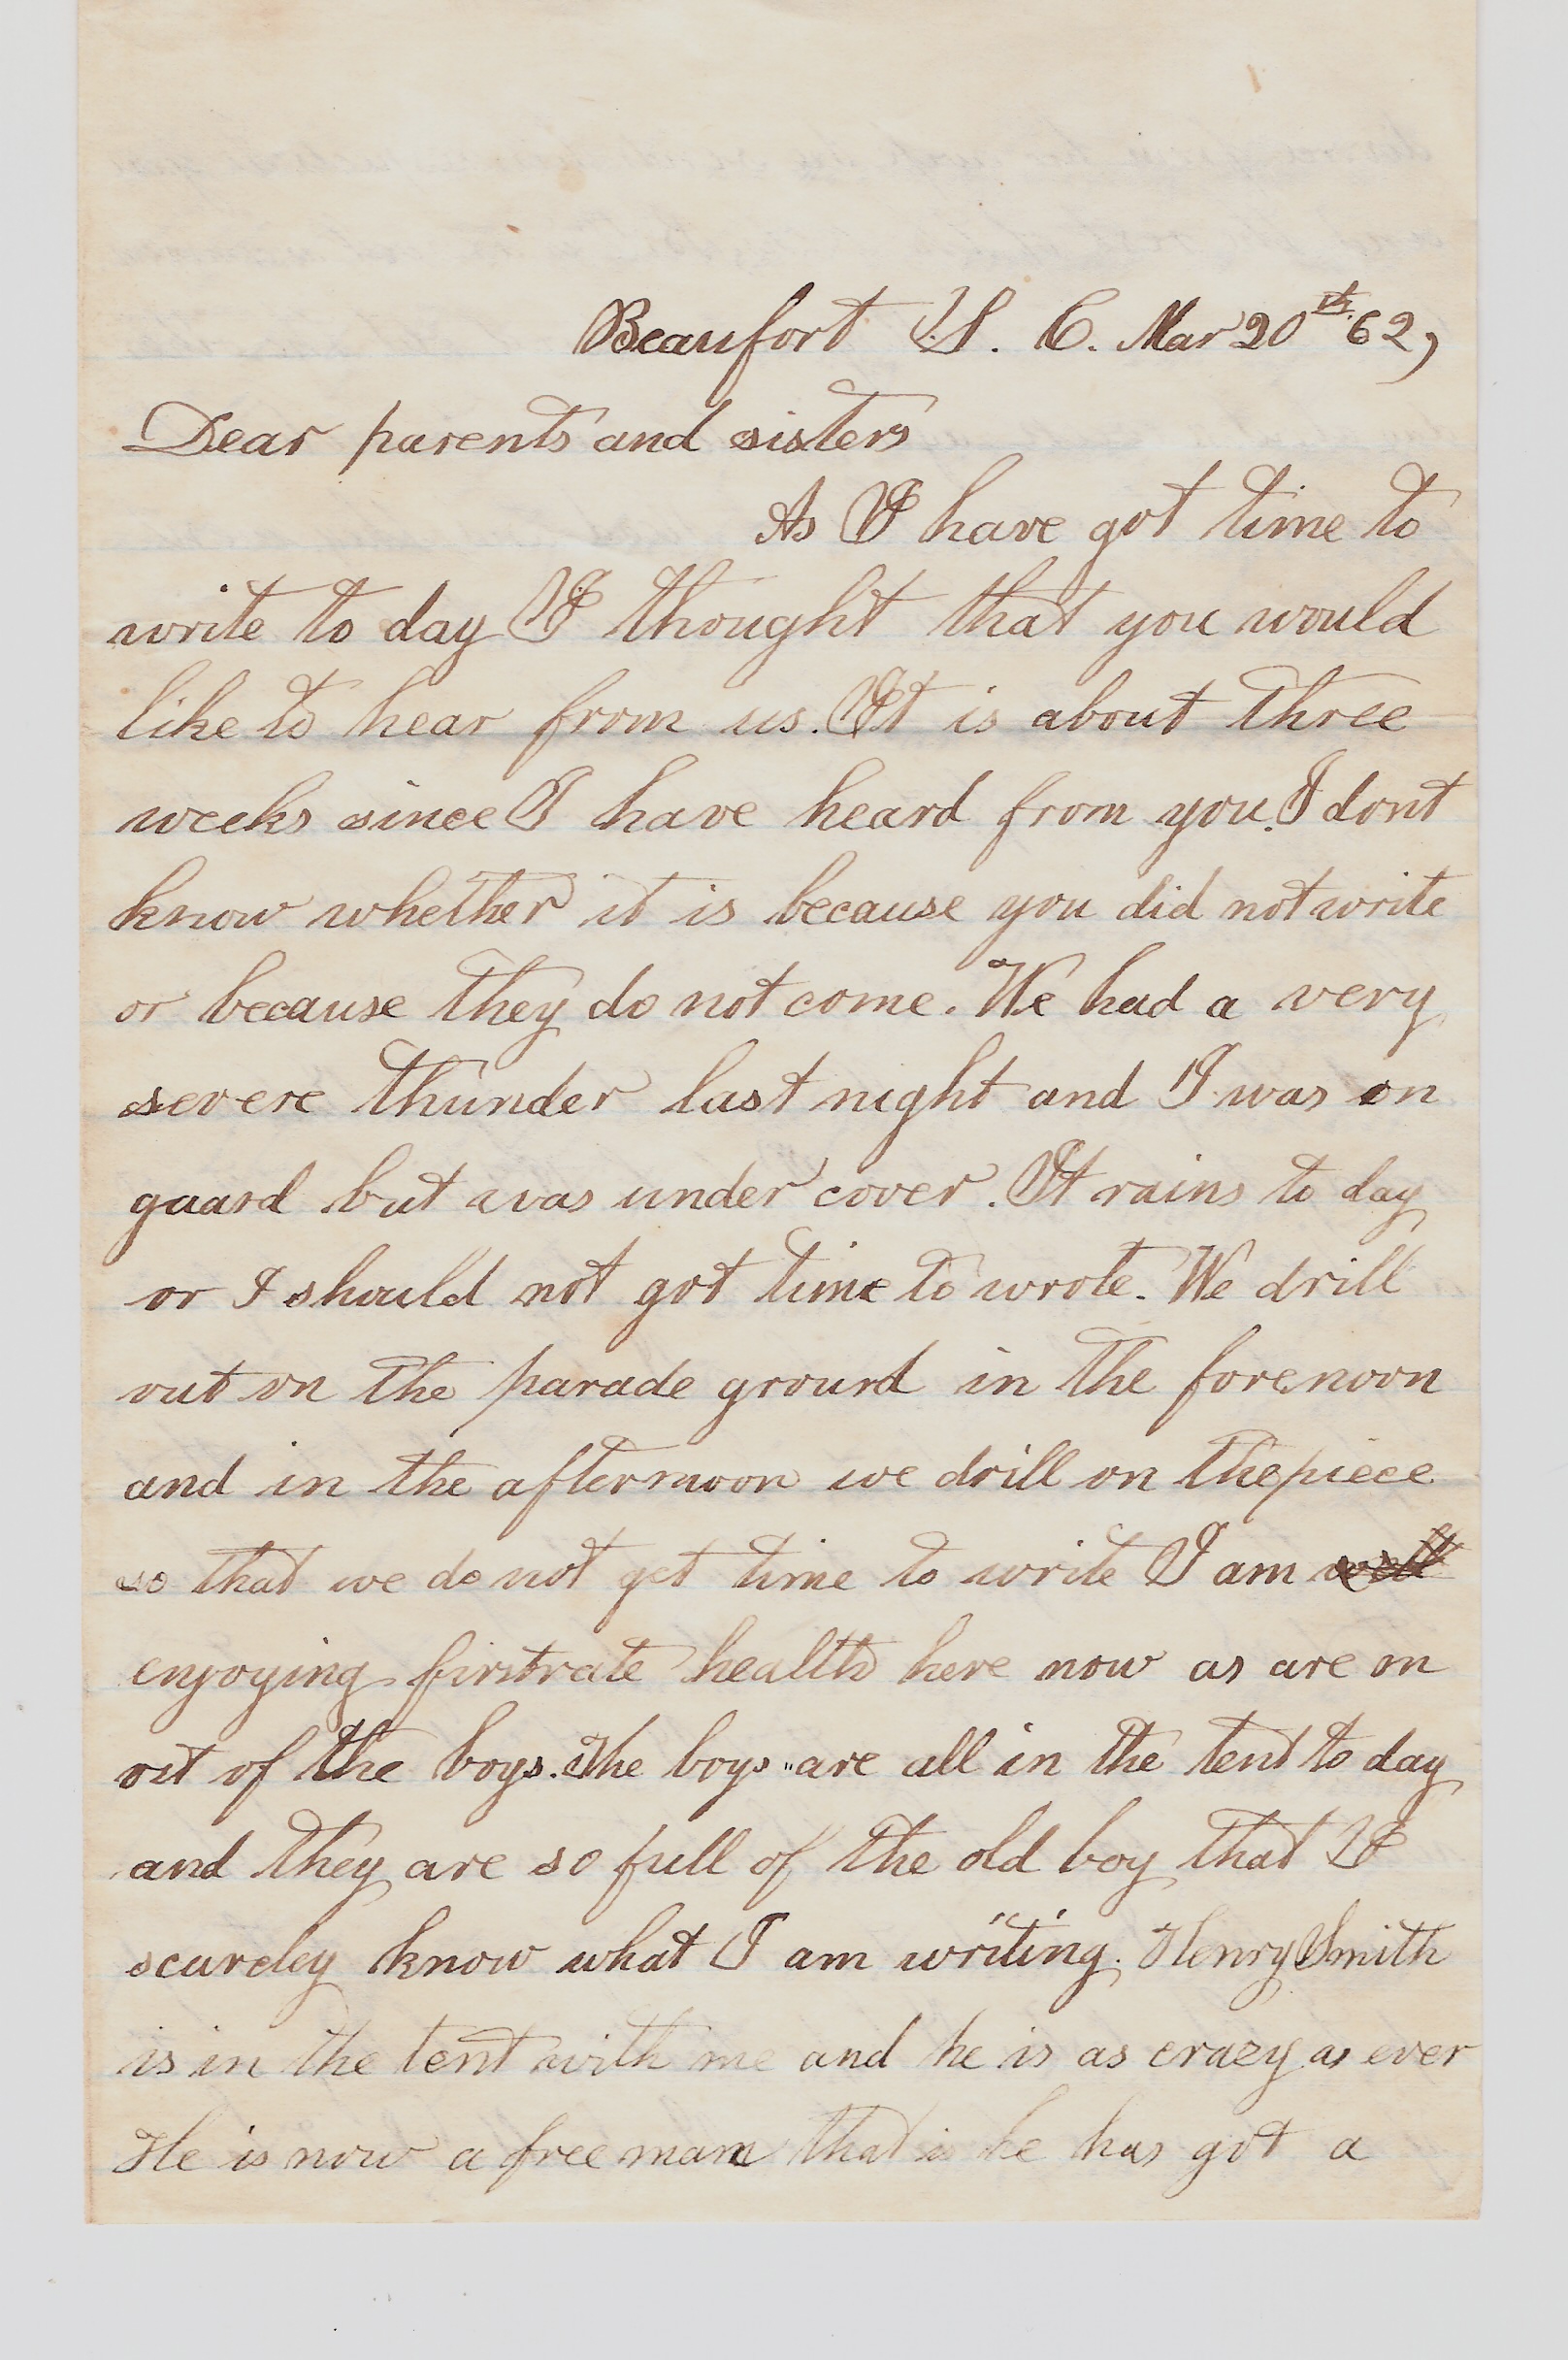 Beaufort S. C. Mar 20th 62,
Dear parents and sisters
As I have got time to
write to day I thought that you would
like to hear from us. It is about three
weeks since I have heard from you. I dont
know whether it is because you did not write
or because they do not come. We had a very
severe thunder last night and I was on
gaard but was under cover. It rains to day
or I should not got time to wrote. We drill
out on the parade ground in the forenoon
and in the afternoon we drill on the piece
so that we do not get time to write I am well
enjoying firstrate health here now as are on
ost of the boys. The boys are all in the tent to day
and they are so full of the old boy that I
scarcley know what I am writing. Henry Smith
is in the tent with me and he is as crazy as ever
He is now a free man that is he has got a